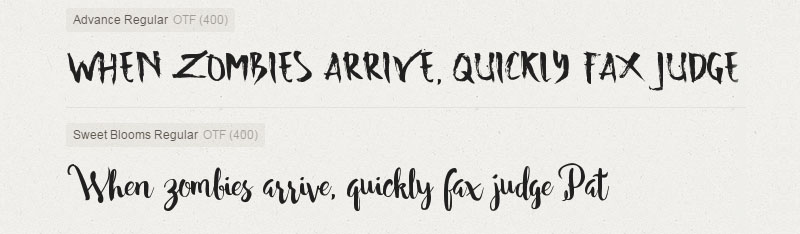 Advance Regular OTF (400)
WHEN ZOMBIES ARRIVE, QUICKLY FAX JUDGE
Sweet Blooms Regular OTF (400)
When zombies arrive, quickly fax judge Pat